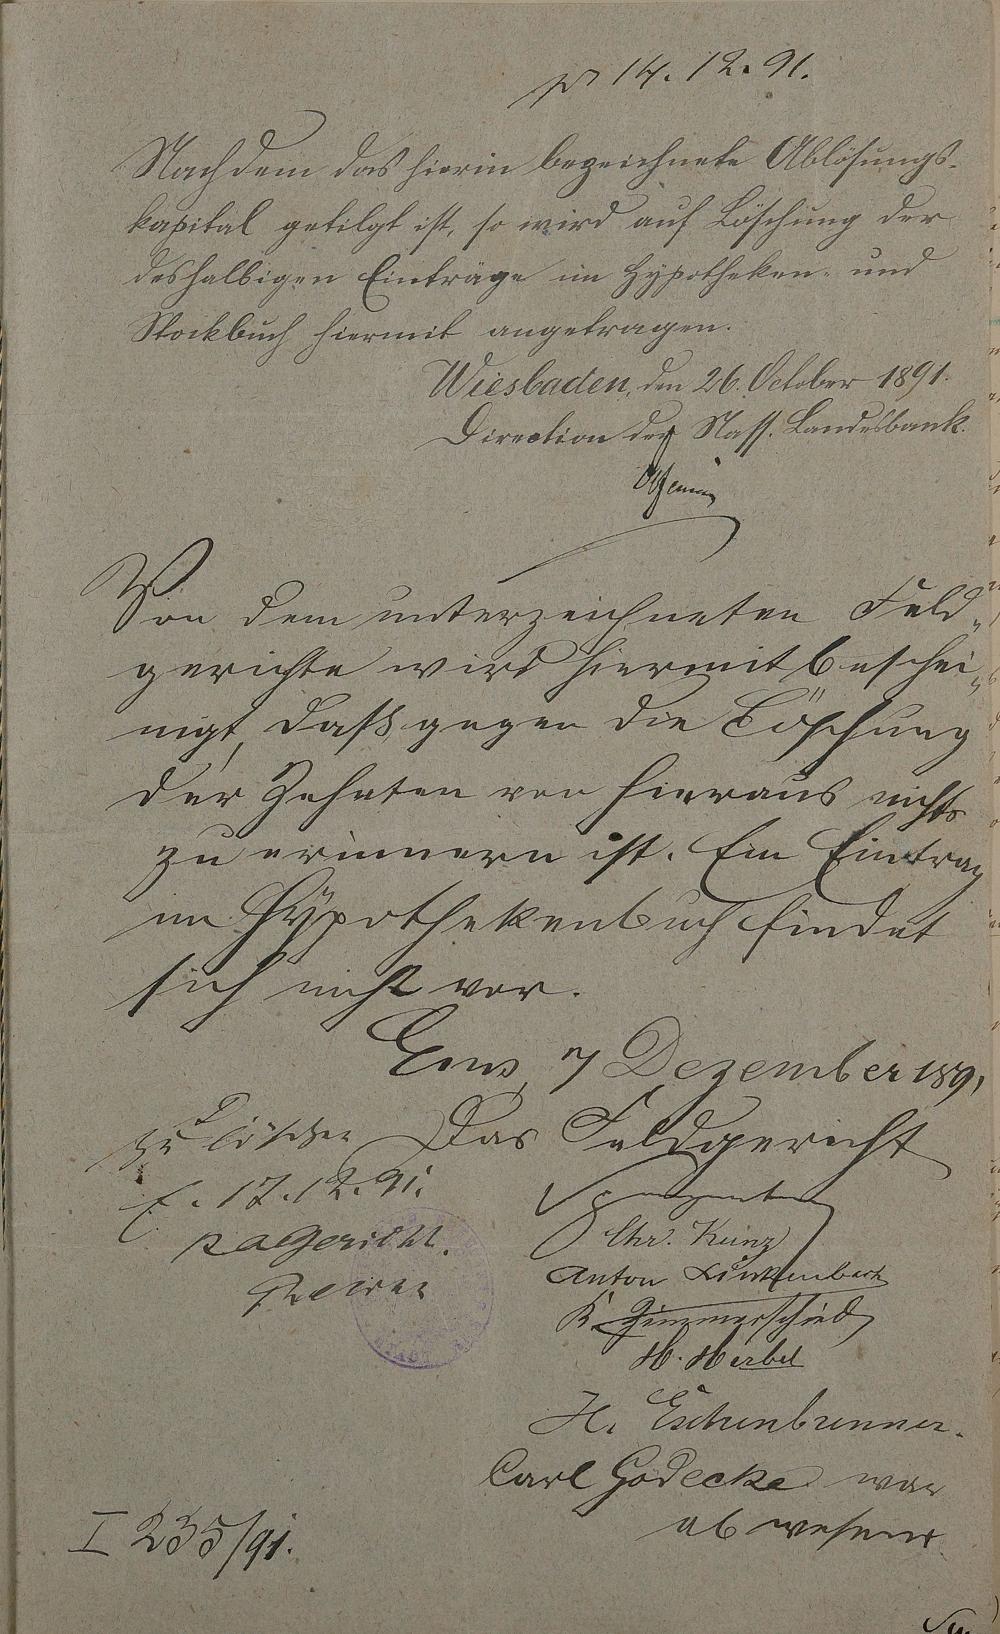 pr 14. 12. 91.
Nachdem das hierin bezeichnete Ablösungs-
kapital getilgt ist, so wird auf Löschung der
deshalbigen Einträge im Hypotheken- und
Stockbuch hiermit angetragen.
Wiesbaden, den 26. October 1891.
Direction der Nass. Landesbank.
Von dem unterzeichneten Feld-
gerichte wird hiermit beschei-
nigt, daß gegen die Löschung
der Zehnten von hieraus nichts
zu erinnern ist. Ein Eintrag
im Hypothekenbuch findet
sich nicht vor.
Ems, 7 Dezember 1891
Das Feldgericht
zu löschen
E. 17. 12. 91.
Agericht.
Spangenberg
Chr. Kunz
Anton Linkenbach
K. Zimmerschied
H. Herbel
H. Eschenbrenner.
Carl Godecke war
abwesend
I 235/91.